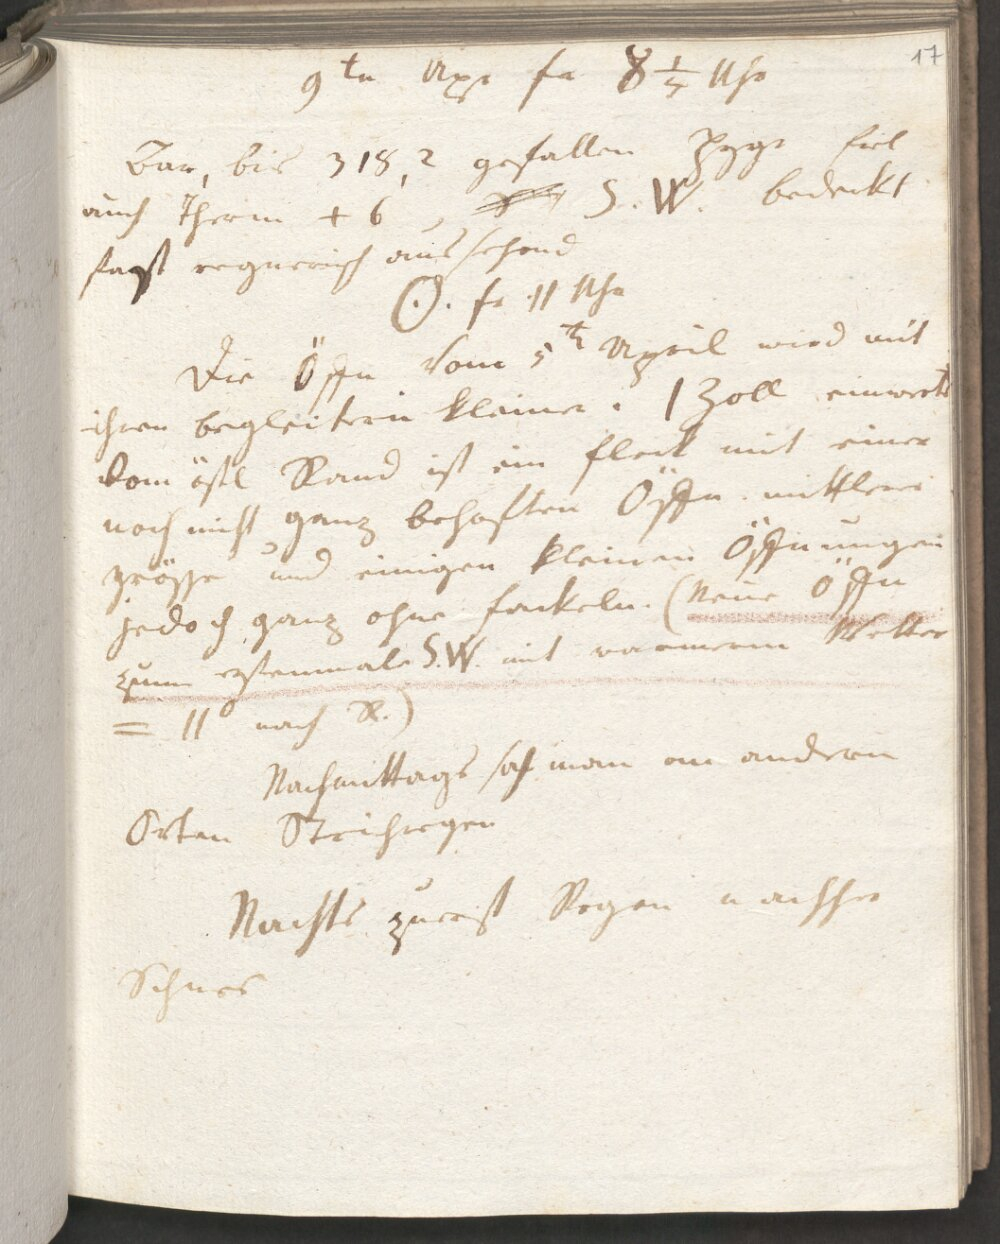 17
9tn Apr fr 8 1/2 Uhr
Bar, bis 318,2 gefallen Hygr fiel
auch Therm + 6, S. W. bedeckt
fast regnerisch aussehend
☉. fr 11 Uhr
Die Öffn vom 5tn April wird mit
ihren begleitern kleiner. 1 Zoll einwerts
vom östl Rand ist ein fleck mit einer
noch nicht ganz behoften Öffn mittlerer
grösse und einigen kleinen Öffnungen
jedoch ganz ohne fackeln. (Neue Öffn
zum erstenmale S.W. mit warmem Wetter
= 11° nach R.)
Nachmittags sah man an andern
Orten Strichregen
Nachts zuerst Regen nachher
Schnee